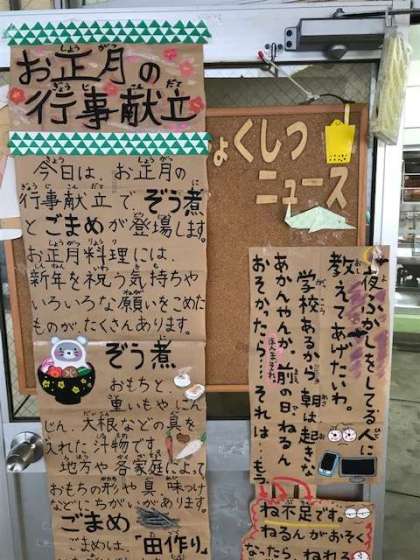 お正月の
行事献立
今日は、お正月の
行事献立で、ぞう煮
とごまめが登場します。
お正月料理には、
新年を祝う気持ちや
いろいろな願いをこめた
ものが、たくさんあります。
ぞう煮
おもちと、
里いもやにん
じん、大根などの具を
入れた汁物です。
地方や各家庭によって
おもちの形や具、味つけ
などにちがいがあります。
ごまめ
ごまめは、「田作り」
くしつ
ニュース
夜ふかしをしてる人に
教えてあげたいわ。
学校あるから朝は起きな
あかんやんか、前の日ねるん
おそかったら…それは…もう
ね不足です。
ねるんがおそく
なったら、ねれる